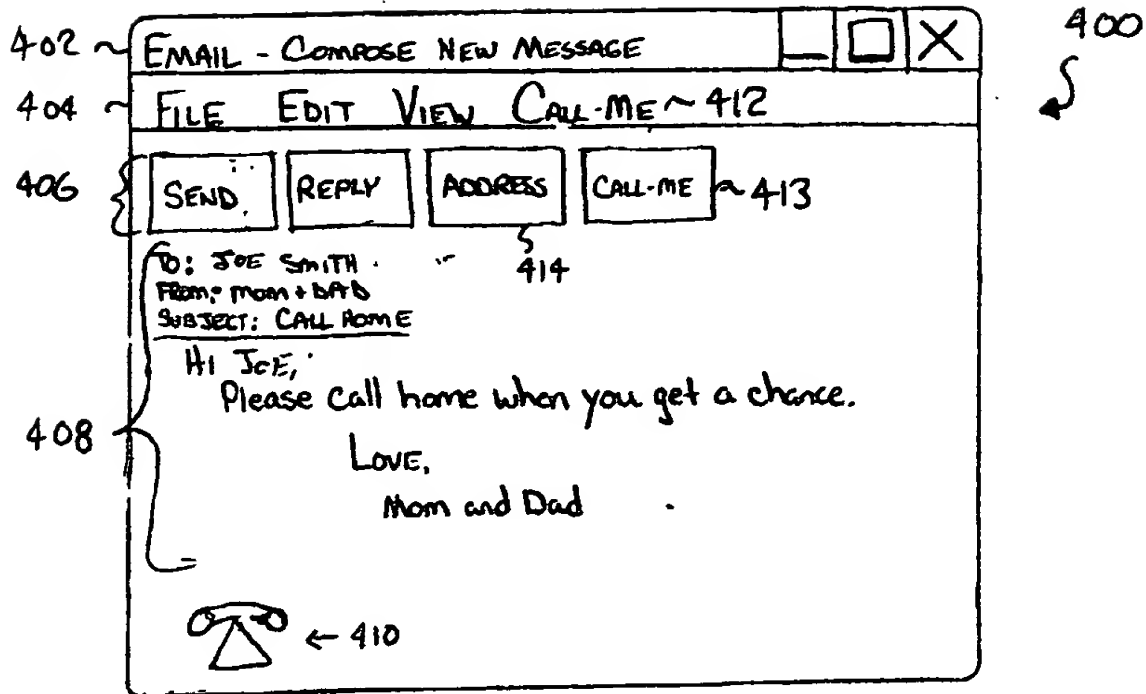 400
402 EMAIL - COMPOSE NEW MESSAGE
404 FILE EDIT VIEW CALL-ME ~ 412
406 SEND REPLY ADDRESS CALL-ME 413
414
TO: JOE SMITH
FROM: MOM + DAD
SUBJECT: CALL HOME
HI JOE,
Please call home when you get a chance.
408
LOVE,
Mom and Dad
← 410